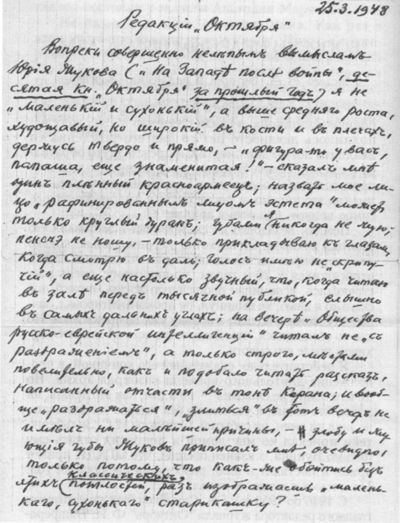 25.3.1948
Редакцiи „Октября"
Вопреки совершенно нелѣпымъ вымысламъ
Юрiя Жукова („На Западѣ послѣ войны", де-
сятая кн. „Октября" за прошлый годъ) я не
„маленькiй и сухонькiй", а выше средняго роста,
худощавый, но широкiй въ кости и въ плечахъ,
держусь твердо и прямо, – „фигура-то у васъ,
папаша, еще знаменитая!" – сказалъ мнѣ
одинъ плѣнный красноармеецъ; назвать мое ли-
цо „рафинированнымъ лицомъ эстета" можетъ
только круглый дуракъ; губами я никогда не жую;
пенснэ не ношу, – только прикладываю къ глазамъ,
когда смотрю въ даль; голосъ имѣю не „скрипу-
чiй", а еще настолько звучный, что, когда читаю
въ залѣ передъ тысячной публикой, слышно
въ самыхъ дальнихъ углахъ; на вечерѣ „Общества
русско-еврейской интеллигенцiи" читалъ не „съ
раздраженiемъ", а только строго, мѣстами
повелительно, какъ и подобало читать разсказъ,
написанный отчасти въ тонѣ Корана; и вооб-
ще „раздражаться", „злиться" въ этотъ вечеръ не
имѣлъ ни малѣйшей причины, – злобу и жу-
ющiя губы Жуковъ приписалъ мнѣ, очевидно,
только потому, что какъ-же обойтись безъ
классическихъ
пошлостей, разъ изображаешь „малень-
каго, сухонькаго" старикашку?